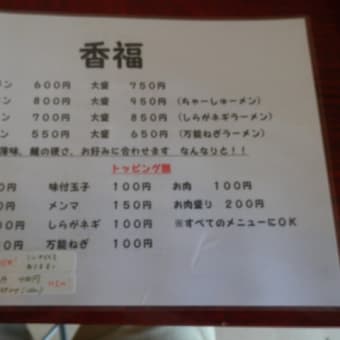 香福
ン 600円 大盛 750円
ン 800円 大盛 950円(ちゃーしゅーメン)
ン 700円 大盛 850円(しらがネギラーメン)
ン 550円 大盛 650円(万能ねぎラーメン)
味、麺の硬さ、お好みに合わせます なんなりと!!
トッピング類
0円 味付玉子 100円 お肉 100円
0円 メンマ 150円 お肉盛り 200円
00円 しらがネギ 100円 ※すべてのメニューにOK
0円 万能ねぎ 100円